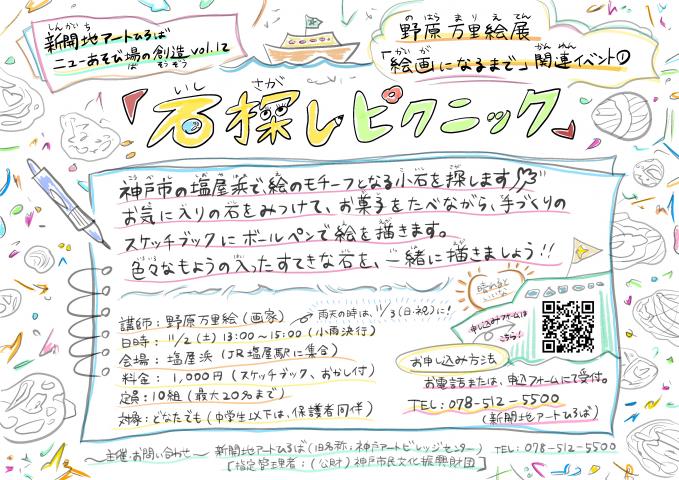 新開地アートひろば
ニューあそび場の創造 vol.12
野原万里絵展
「絵画になるまで」関連イベント①
「石探しピクニック」
神戸市の塩屋浜で、絵のモチーフとなる小石を探します
お気に入りの石をみつけて、お菓子をたべながら、手づくりの
スケッチブックにボールペンで絵を描きます。
色々なもようの入ったすてきな石を、一緒に描きましょう!!
講師:野原万里絵(画家)
雨天の時は、11/3(日・祝)に!
日時:11/2(土)13:00~15:00(小雨決行)
会場:塩屋浜(JR塩屋駅に集合)
料金:1,000円(スケッチブック、おかし付)
定員:10組(最大20名まで)
対象:どなたでも(中学生以下は、保護者同伴)
晴れると
いいな
申し込みフォームは
こちら!
お申し込み方法
お電話または、申込フォームにて受付。
TEL:078-512-5500
(新開地アートひろば)
~主催・お問い合わせ~ 新開地アートひろば(旧名称:神戸アートビレッジセンター) TEL:078-512-5500
[指定管理者:(公財)神戸市民文化振興財団]